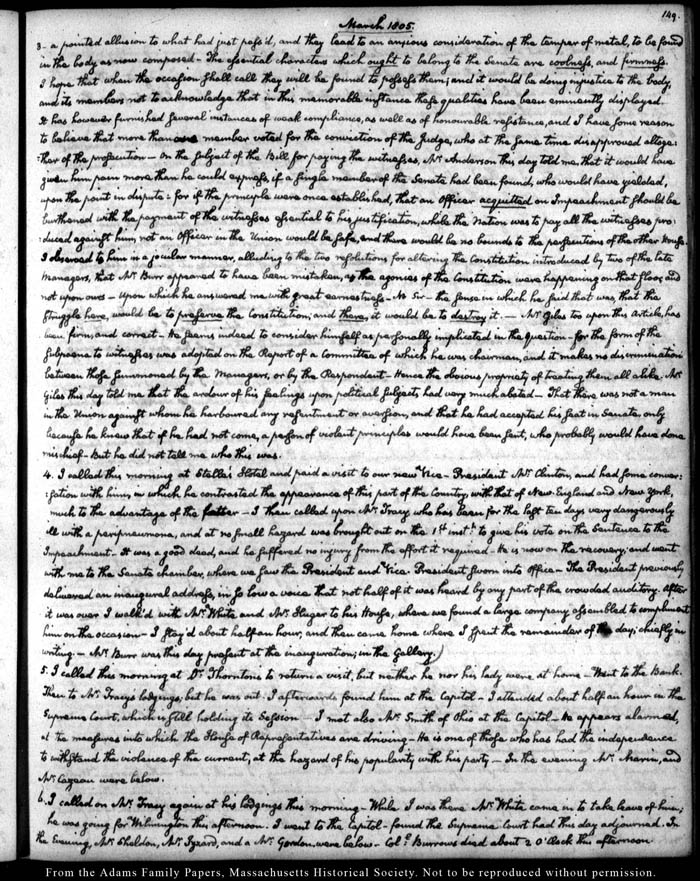 149.
March 1805.
3- a pointed allusion to what had just pass'd, and they lead to an anxious consideration of the temper of metal, to be found
in the body as now composed- The essential characters which ought to belong to the Senate are coolness, and firmness.
I hope that when the occasion shall call they will be found to possess them; and it would be doing injustice to the body,
and its members not to acknowledge that in this memorable instance those qualities have been eminently displayed.
It has however furnished several instances of weak compliance, as well as of honourable resistance, and I have some reason
to believe that more than one member voted for the conviction of the Judge, who at the same time disapproved altoge:
:ther of the prosecution — On the subject of the Bill for paying the witnesses, Mr. Anderson this day told me, that it would have
given him pain more than he could express, if a single member of the Senate had been found, who would have yielded,
upon the point in dispute: for if the principle were once established, that an Officer acquitted on Impeachment should be
burthened with the payment of the witnesses essential to his justification, while the Nation was to pay all the witnesses pro:
:duced against him, not an Officer in the Union would be safe, and there would be no bounds to the persecutions of the other House.
I observed to him in a jocular manner, alluding to the two resolutions for altering the Constitution introduced by two of the late
Managers, that Mr. Burr appeared to have been mistaken, as the agonies of the Constitution were happening on that floor, and
not upon ours — Upon which he answered me with great earnestness- No Sir — the sense in which he said that was, that the
struggle here, would be to preserve the Constitution; and there, it would be to destroy it. — Mr. Giles too upon this article, has
been firm, and correct — He seems indeed to consider himself as personally implicated in the question — for the form of the
subpoena to witnesses was adopted on the Report of a Committee of which he was chairman, and it makes no discrimination
between those summoned by the Managers, or by the Respondent — Hence the obvious propriety of treating them all alike. Mr.
Giles this day told me that the ardour of his feelings upon political subjects, had very much abated — That there was not a man
in the Union against whom he harboured any resentment or aversion, and that he had accepted his seat in Senate, only
because he knew that if he had not come, a person of violent principles would have been sent, who probably would have done
mischief — But he did not tell me who this was.
4. I called this morning at Stelle's Hotel and paid a visit to our new Vice-President Mr. Clinton, and had some conver:
:sation with him; in which he contrasted the appearance of this part of the Country, with that of New England and New York,
much to the advantage of the latter — I then called upon Mr. Tracy, who has been for the last ten days very dangerously
ill with a peripneumonia, and at no small hazard was brought out on the 1st. inst.t to give his vote on the Sentence to the
Impeachment. It was a good deed, and he suffered no injury from the effort it required — He is now on the recovery; and went
with me to the Senate chamber, where we saw the President and Vice-President sworn into office — The President previously
delivered an inaugural address, in so low a voice that not half of it was heard by any part of the crowded auditory. After
it was over I walk'd with Mr. White and Mr. Huger to his House, where we found a large company assembled to compliment
him on the occasion — I stay'd about half an hour, and then came home where I spent the remainder of the day; chiefly in
writing — Mr. Burr was this day present at the inauguration; in the Gallery.
5. I called this morning at Dr. Thornton's to return a visit, but neither he nor his lady were at home — Went to the Bank.
Then to Mr. Tracy's lodgings, but he was out. I afterwards found him at the Capitol — I attended about half an hour in the
Supreme Court, which is still holding its Session — I met also Mr. Smith of Ohio at the Capitol — He appears alarmed,
at the measures into which the House of Representatives are driving — He is one of those who has had the independence
to withstand the violence of the current, at the hazard of his popularity with his party — In the evening Mr. and
Mr. Cazeau were below.
6. I called on Mr. Tracy again at his lodgings this morning — While I was there Mr. White came in to take leave of him;
he was going for Wilmington this afternoon. I went to the Capitol — found the Supreme Court had this day adjourned. In
the Evening, Mr. Sheldon, Mr. Izard, and a Mr. Gordon, were below — Col.l Burrows died about 2 O'Clock this afternoon
From the Adams Family Papers, Massachusetts Historical Society. Not to be reproduced without permission.